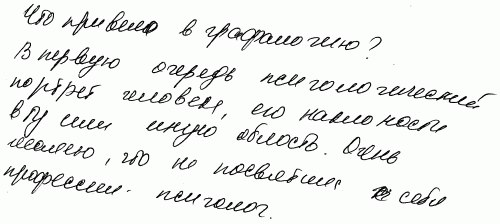 Что привело в графологию?
В первую очередь психологический
портрет человека, его наклоности
в ту или иную область. Очень
жалею, что не посвятила себя
профессии психолог.